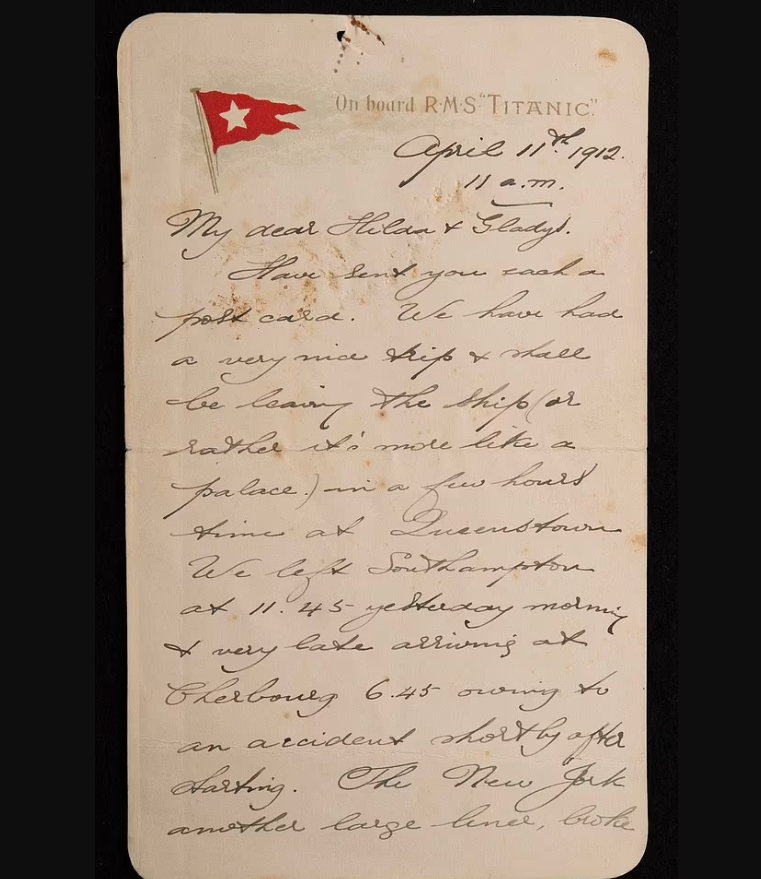 On board R·M·S "TITANIC".
April 11th. 1912.
11 a.m.
My dear Hilda & Gladys.
Have sent you each a
post card. We have had
a very nice trip & shall
be leaving the ship (or
rather it's more like a
palace.) in a few hours
time at Queenstown
We left Southampton
at 11.45 yesterday morning
& very late arriving at
Cherbourg 6.45 owing to
an accident shortly after
starting. The New York
another large liner, broke